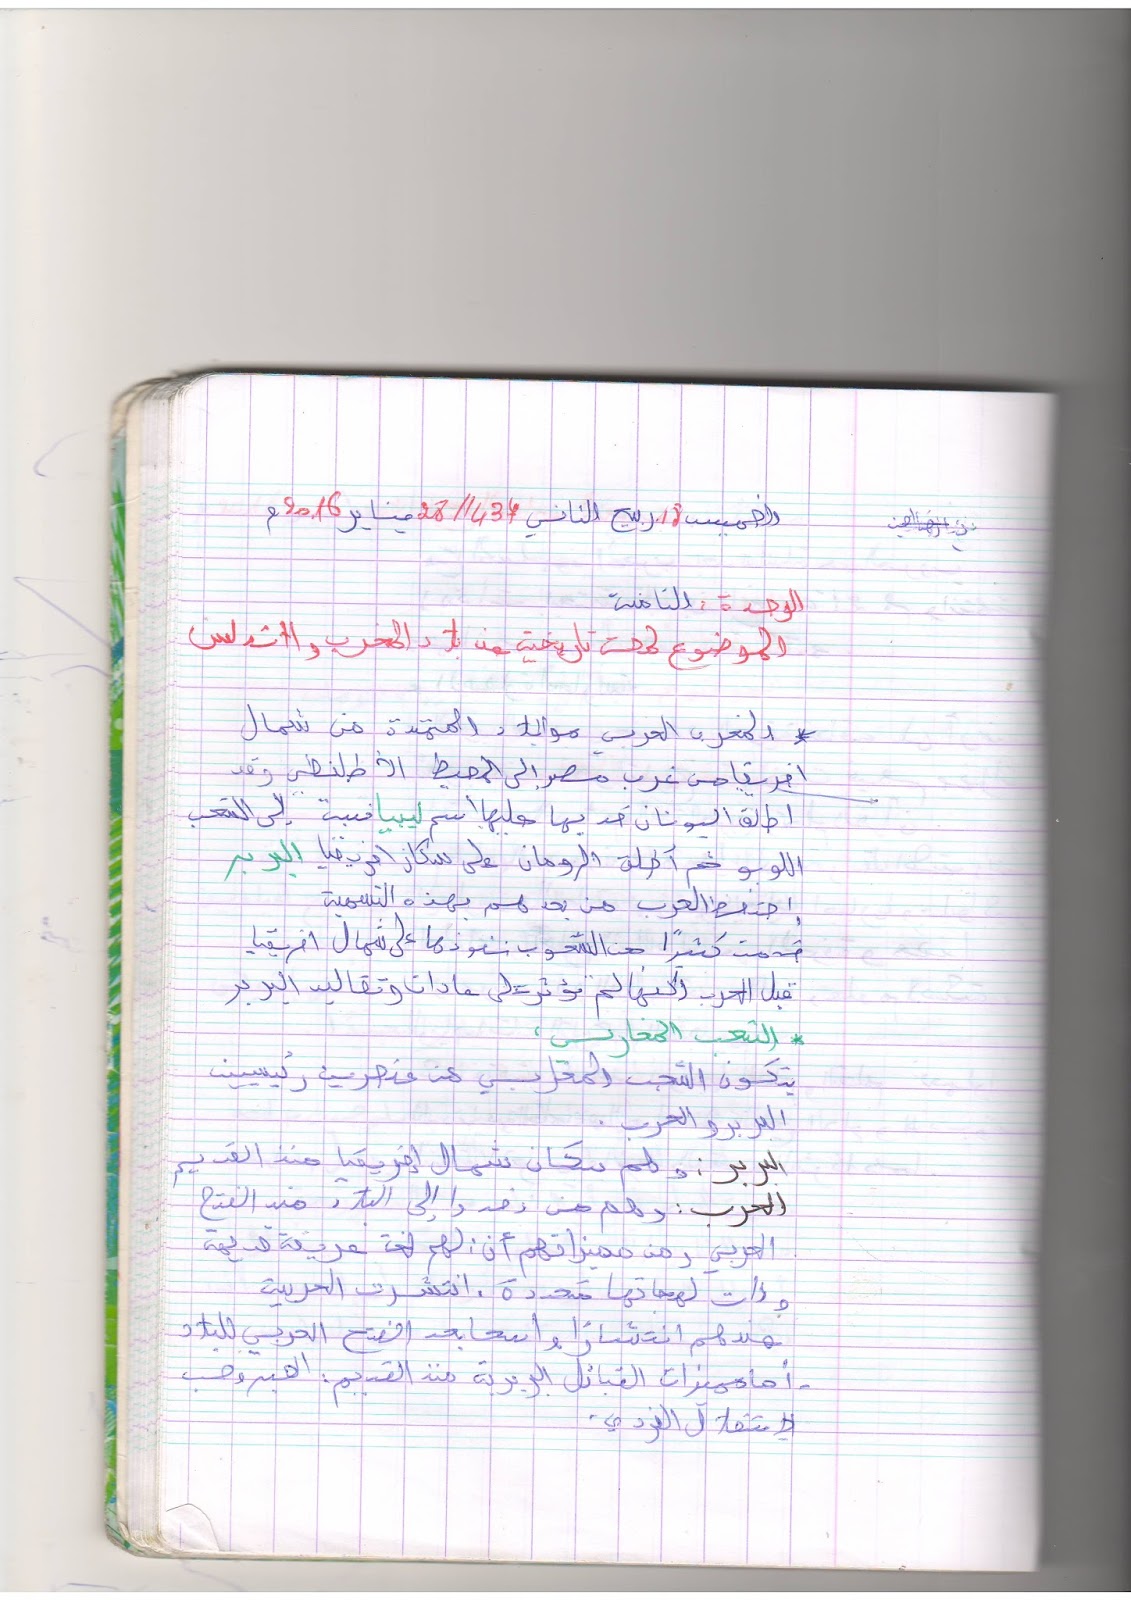 الخميس 18 ربيع الثاني 1437/ 28 يناير 2016م
الوحدة : الثامنة
الموضوع لمحة تاريخية عن بلاد المغرب والأندلس
* المغرب العربي هو البلاد الممتدة من شمال
افريقيا من غرب مصر إلى المحيط الأطلنطي وقد
اطلق اليونان قديما عليها اسم ليبيا نسبة إلى الشعب
اللوبو ثم أطلق الرومان على سكان افريقيا البربر
إحتفظ العرب من بعدهم بهذه التسمية
قدمت كثيرًا من الشعوب نفوذها على شمال افريقيا
قبل العرب ولكنها لم تؤثر على عادات وتقاليد البربر
* الشعب المغاربي :
يتكون الشعب المغربي من عنصرين رئيسيين
البربر والعرب .
البربر : وهم سكان شمال إفريقيا منذ القديم
العرب : وهم من وفدوا إلى البلاد منذ الفتح
العربي ومن مميزاتهم أن : لهم لغة عريقة قديمة
وذات لهجاتها متعددة . انتشرت العربية
عندهم انتشارًا واسعا بعد الفتح العربي للبلاد
- أما مميزات القبائل البربرية منذ القديم : الصبر وحب
الاستقلال الفردي .